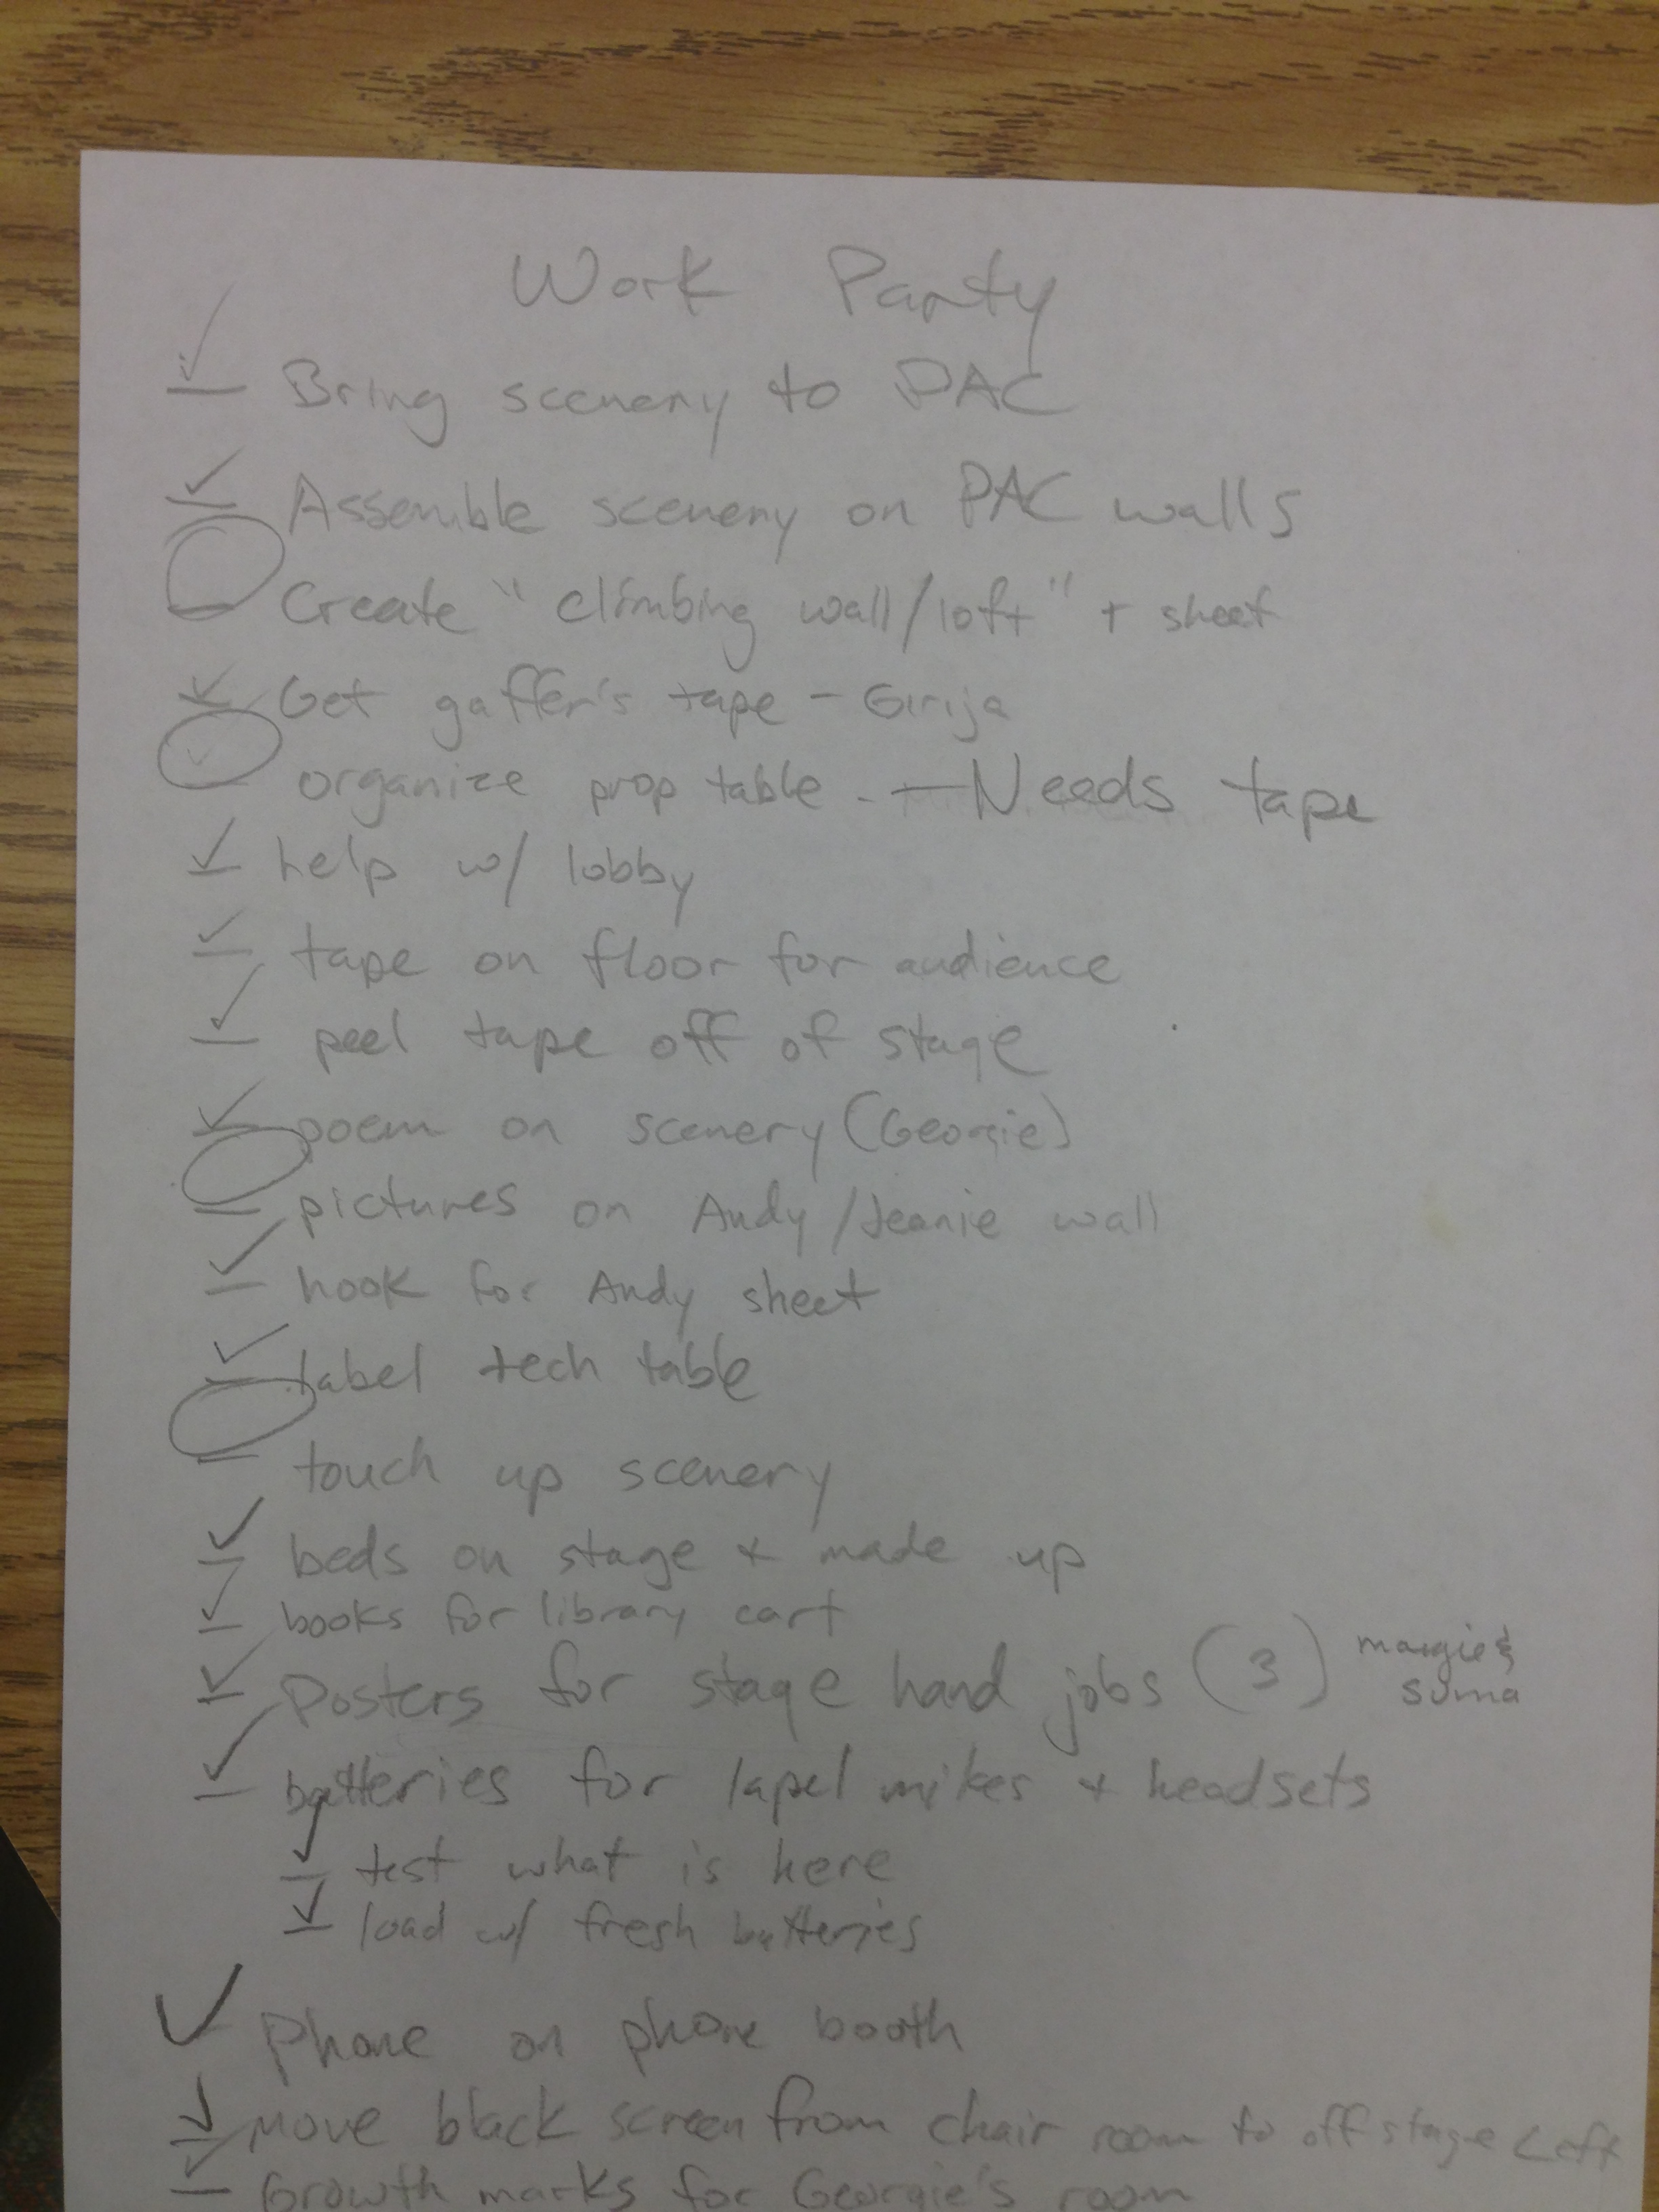 Work Party
✓ Bring scenery to PAC
✓ Assemble scenery on PAC walls
Create "climbing wall/loft" + sheet
✓ Get gaffer's tape - Girija
✓ organize prop table - - Needs tape
✓ help w/ lobby
✓ tape on floor for audience
✓ peel tape off of stage
✓ poem on scenery (Georgie)
pictures on Andy/Jeanie wall
✓ hook for Andy sheet
✓ label tech table
touch up scenery
✓ beds on stage + made up
✓ books for library cart
✓ Posters for stage hand jobs (3) margie & Suma
✓ batteries for lapel mikes + headsets
✓ test what is here
✓ load w/ fresh batteries
✓ Phone on phone booth
✓ Move black screen from chair room to off stage Left
✓ Growth marks for Georgie's room